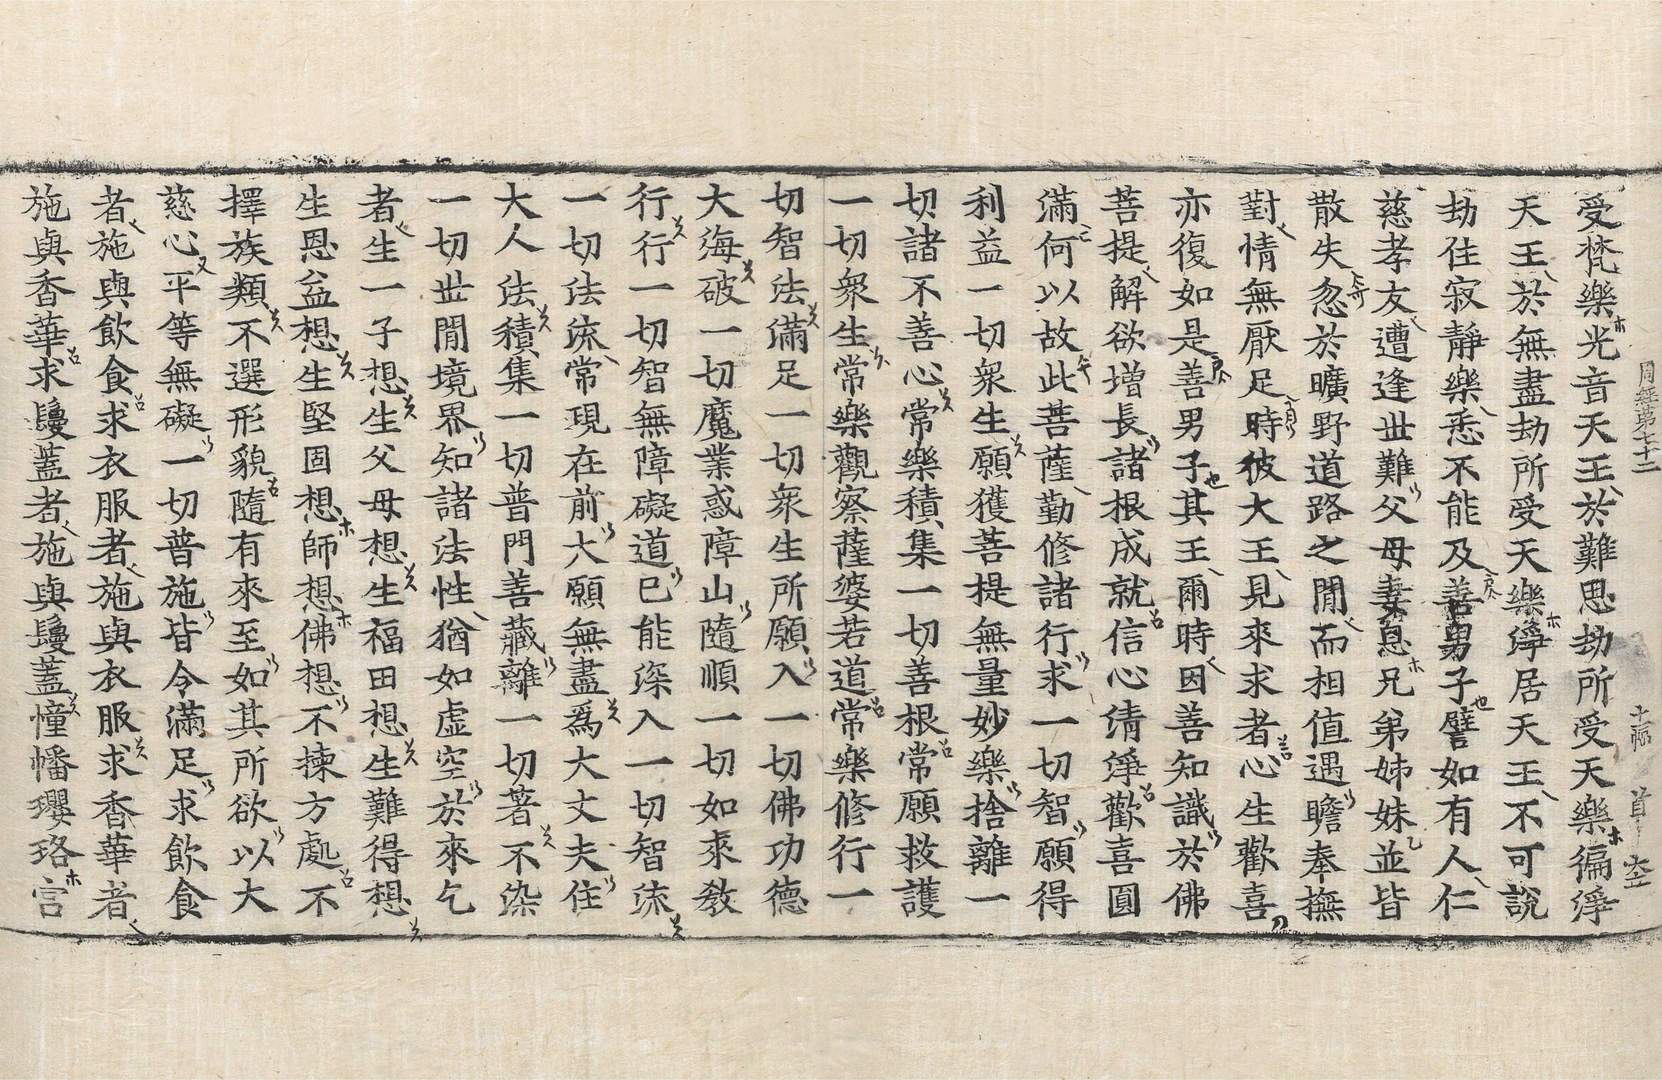 周經第七十二
受梵樂光音天王於難思劫所受天樂徧淨
天王於無盡劫所受天樂淨居天王不可說
劫住寂靜樂悉不能及善男子譬如有人仁
慈孝友遭逢世難父母妻息兄弟姊妹並皆
散失忽於曠野道路之閒而相值遇瞻奉撫
對情無厭足時彼大王見來求者心生歡喜
亦復如是善男子其王爾時因善知識於佛
菩提解欲增長諸根成就信心清淨歡喜圓
滿何以故此菩薩勤修諸行求一切智願得
利益一切衆生願獲菩提無量妙樂捨離一
切諸不善心常樂積集一切善根常願救護
一切衆生常樂觀察薩婆若道常樂修行一
切智法滿足一切衆生所願入一切佛功德
大海破一切魔業惑障山隨順一切如來教
行行一切智無障礙道已能深入一切智流
一切法流常現在前大願無盡爲大丈夫住
大人法積集一切普門善藏離一切著不染
一切世閒境界知諸法性猶如虛空於來乞
者生一子想生父母想生福田想生難得想
生恩益想生堅固想師想佛想不揀方處不
擇族類不選形貌隨有來至如其所欲以大
慈心平等無礙一切普施皆令滿足求飲食
者施與飲食求衣服者施與衣服求香華者
施與香華求鬘蓋者施與鬘蓋幢幡瓔珞宮